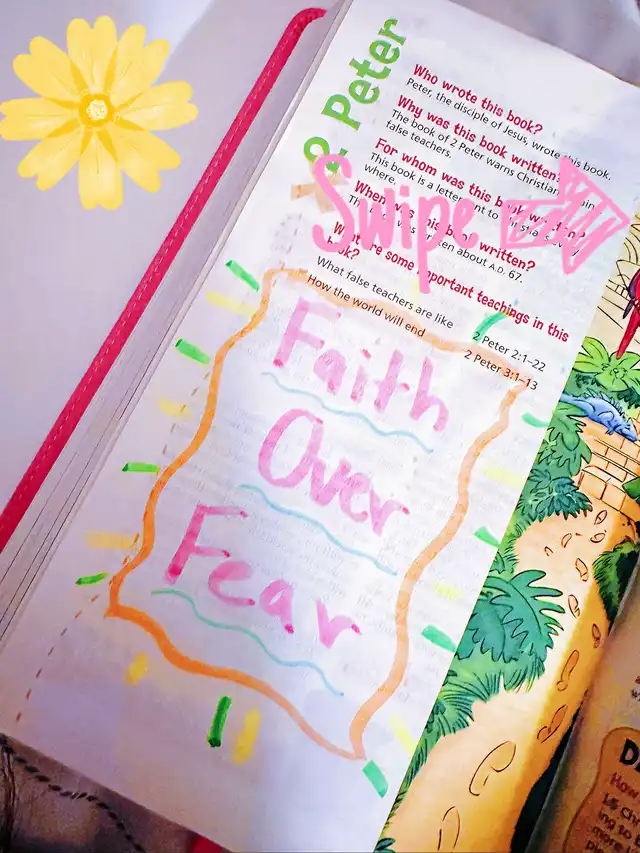 2 Peter
Who wrote this book?
Peter, the disciple of Jesus, wrote this book.
Why was this book written?
The book of 2 Peter warns Christians
false teachers.
For whom was this book written?
This book is a letter sent to Christians
where.
When was this book written?
This book was written about A.D. 67.
What are some important teachings in this
book?
What false teachers are like 2 Peter 2:1–22
How the world will end 2 Peter 3:1–13
Swipe
Faith
Over
Fear
How